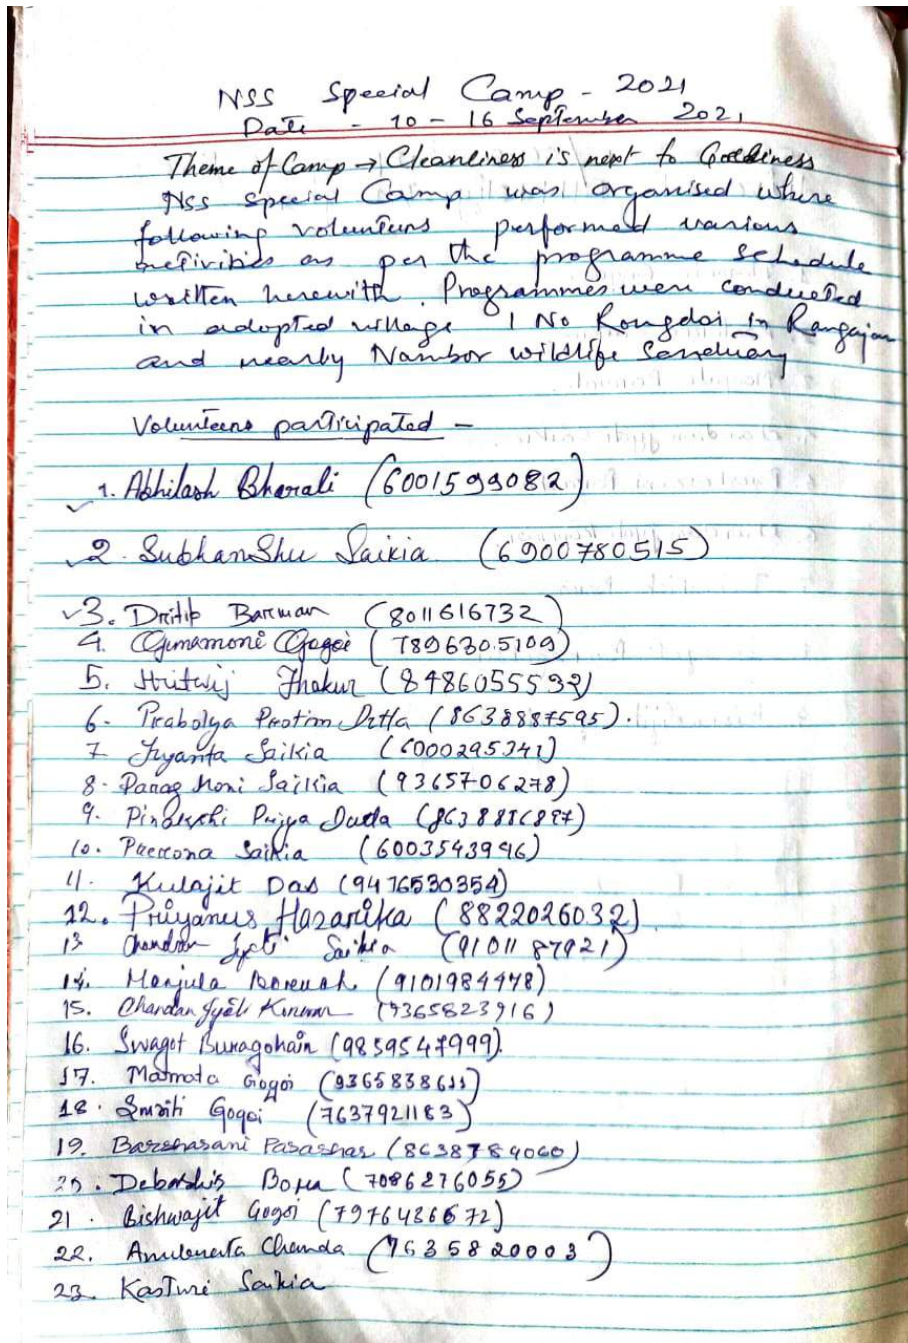 NSS Special Camp - 2021
Date - 10 - 16 September 2021
Theme of Camp → Cleanliness is next to Godliness
NSS special Camp was organised where
following volunteers performed various
activities as per the programme schedule
written herewith. Programmes were conducted
in adopted village 1 No Rongdoi in Rangajan
and nearby Nambor wildlife Sanctuary
Volunteers participated -
1. Abhilash Bharali (6001599082)
2. Subhanshu Saikia (6900780515)
3. Dritip Barman (8011616732)
4. Gunamoni Gogoi (7896305109)
5. Hritwij Thakur (8486055532)
6- Prabolya Protim Dutta (8638887595).
7 Jyanta Saikia (6000295341)
8. Parag Moni Saikia (9365706278)
9. Pinakshi Priya Dutta (8638886897)
10. Prerona Saikia (6003543946)
11. Kulajit Das (9476530354)
12. Priyanus Hazarika (8822026032)
13 Chandan Jyoti Saikia (9101187921)
14. Manjula Boruah (9101984478)
15. Chandan Jyoti Konwar (9365823916)
16. Swagot Buragohain (9859547999).
17. Mamota Gogoi (9365838611)
18. Smriti Gogoi (7637921183)
19. Barshasani Pasashar (8638784060)
20. Debashis Bora (7086276055)
21. Bishwajit Gogoi (7976486672)
22. Chanda (7635820003)
23. Kasturi Saikia